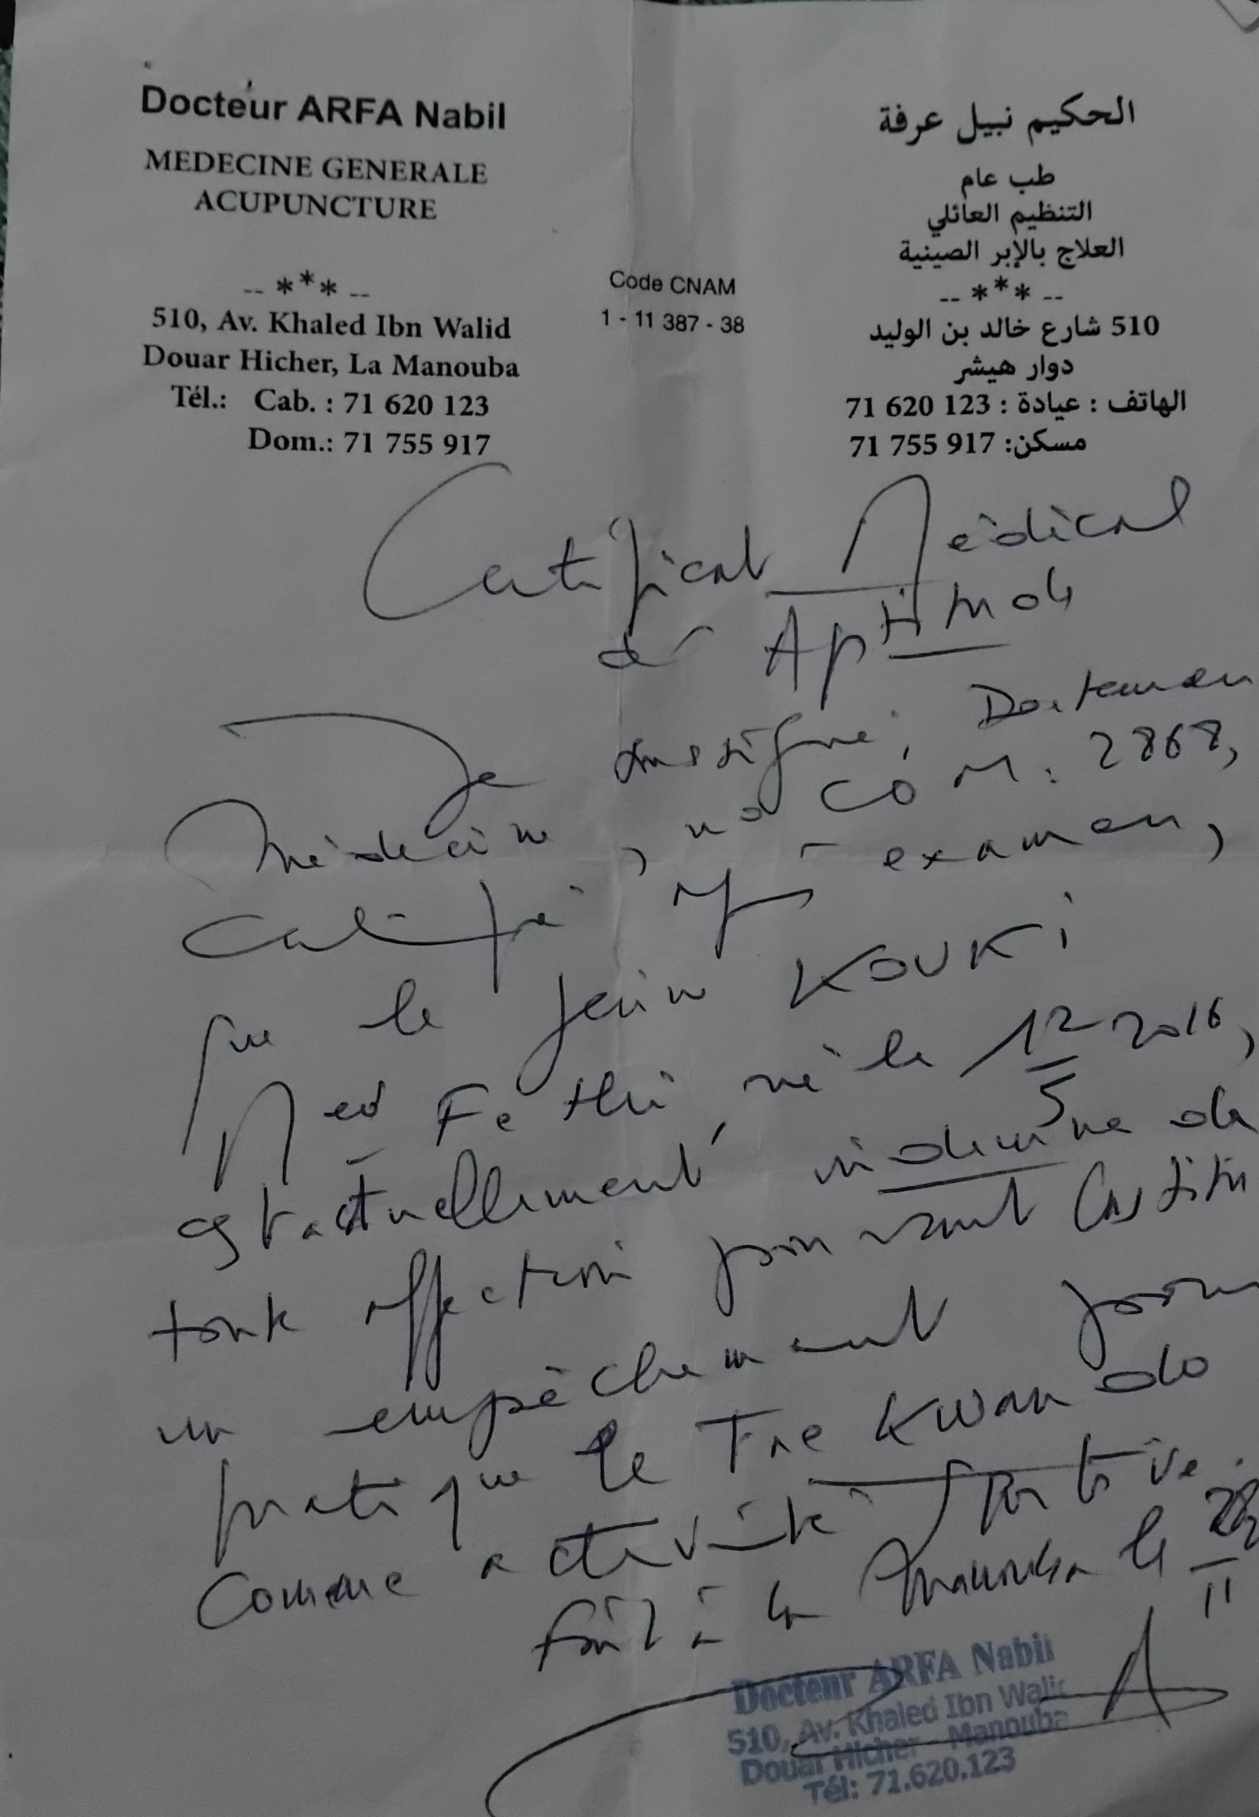 Docteur ARFA Nabil
MEDECINE GENERALE
ACUPUNCTURE
-- *** --
510, Av. Khaled Ibn Walid
Douar Hicher, La Manouba
Tél.: Cab. : 71 620 123
Dom.: 71 755 917
Code CNAM
1 - 11 387 - 38
الحكيم نبيل عرفة
طب عام
التنظيم العائلي
العلاج بالإبر الصينية
-- *** --
510 شارع خالد بن الوليد
دوار هيشر
الهاتف : عيادة : 123 620 71
مسكن: 917 755 71
Certificat Médical
d'Aptitude
Je soussigné, Docteur en
Médecine, no CO M: 2868,
Certifie après examen,
que le jeune KOUKI
Med Fethi, né le 12/5 2016,
est actuellement indemne de
toute affection pouvant Constituer
un empêchement pour
pratiquer le Tae Kwan do
comme activité sportive.
fait à la Manouba le 11
Docteur ARFA Nabil
510, Av. Khaled Ibn Walid
Douar Hicher - Manouba
Tél: 71.620.123